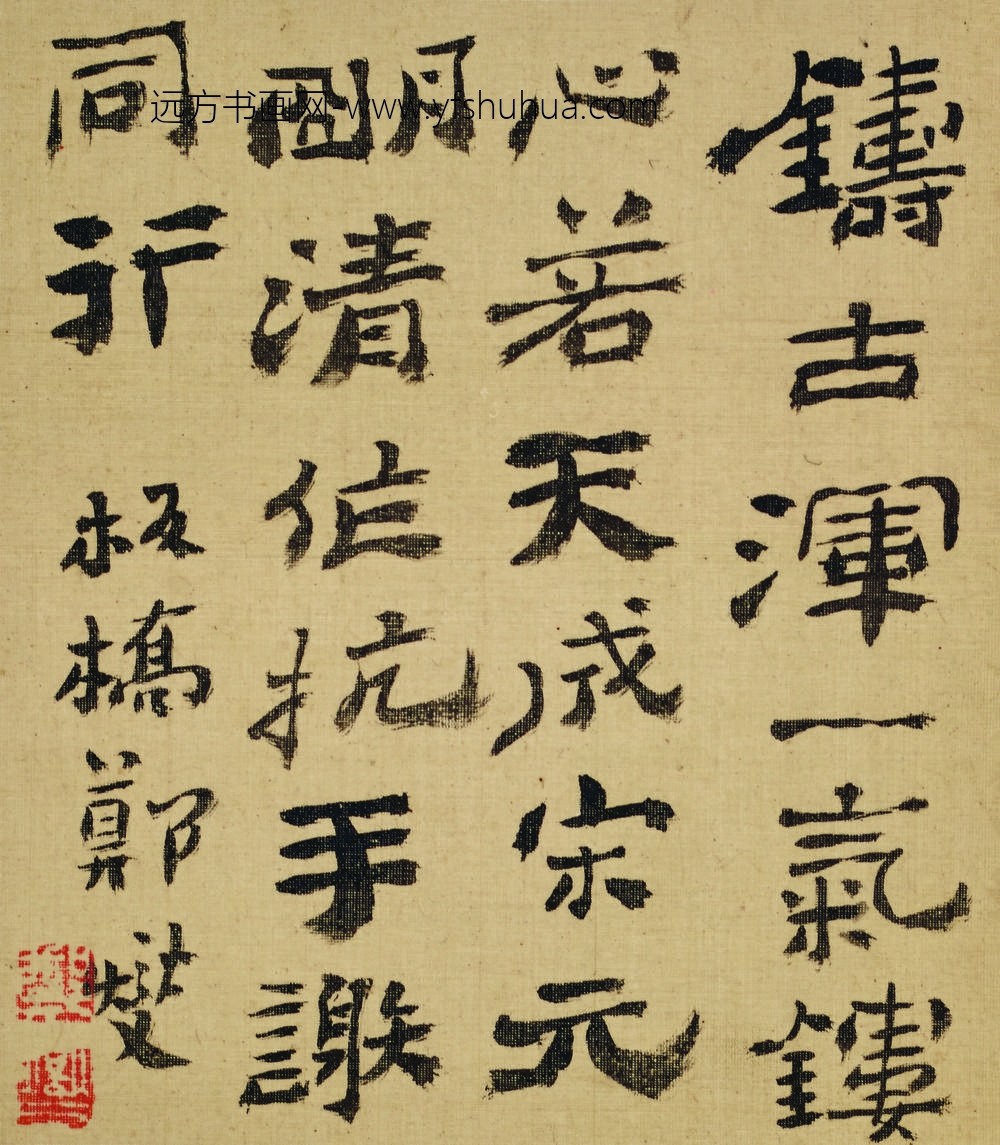 鑄古渾一氣鏤
心若天成宋元
朙清作抗手謝
同行
板橋鄭燮
远方书画网-www.yfshuhua.com